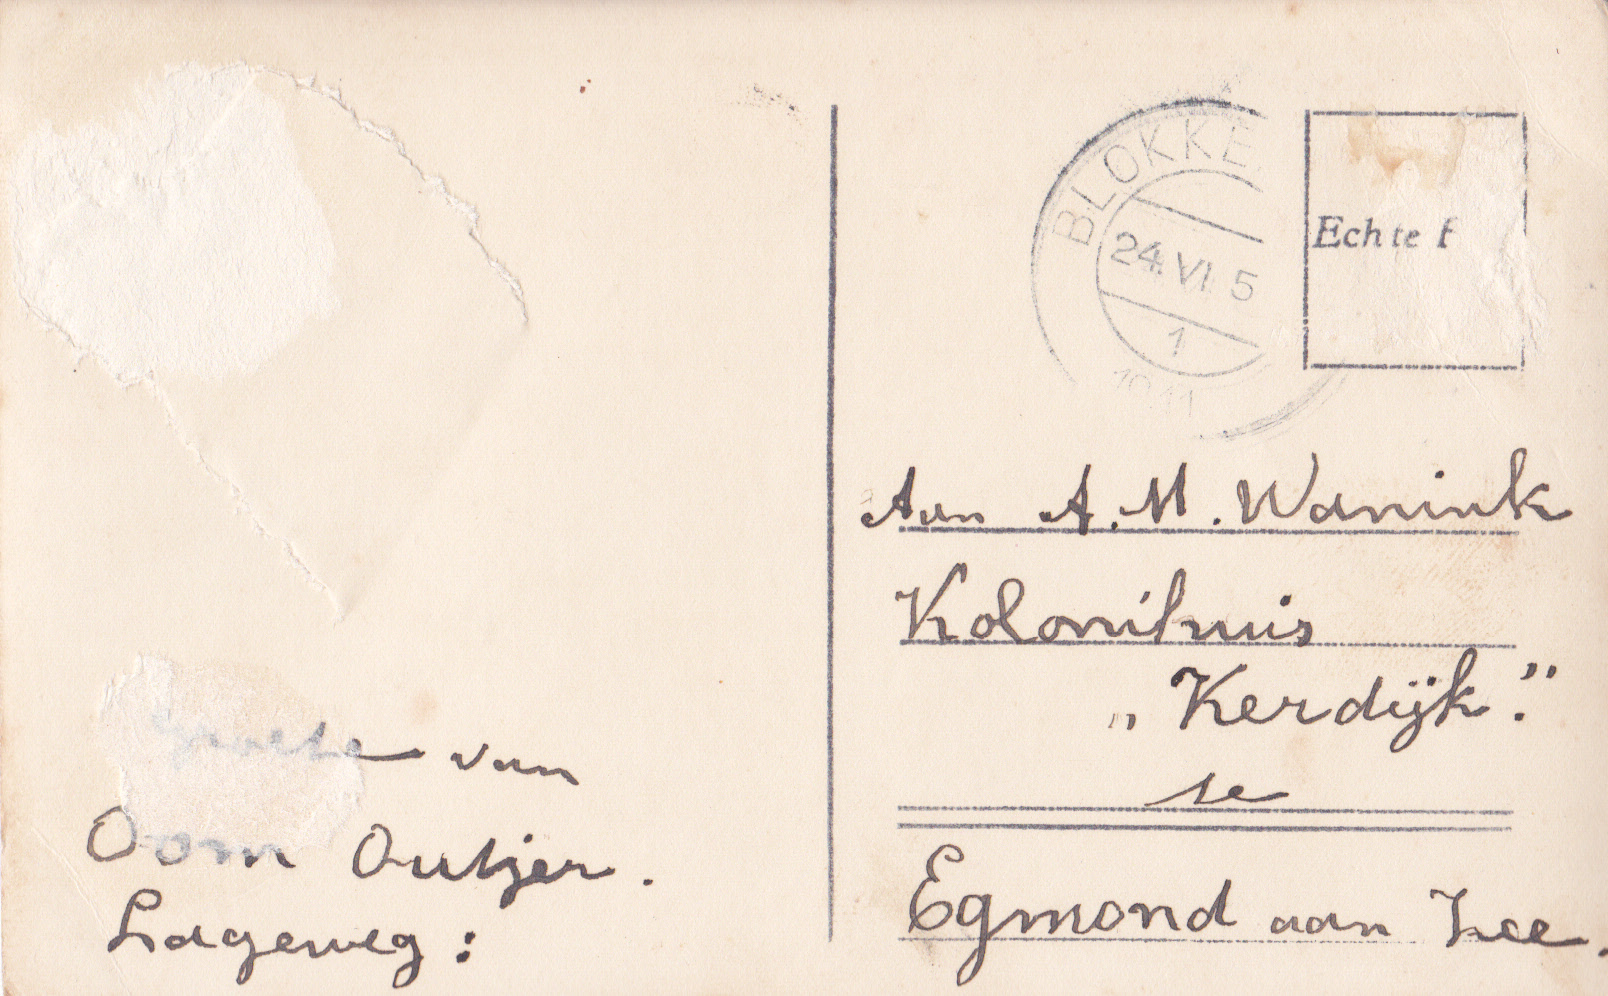 BLOKKE
24.VI 5
1
1941
Echte f
Aan A.M. Wanink
Kolonihuis
„Kerdijk."
te
Egmond aan Zee.
Groete van
Oom Outjer.
Lageweg: